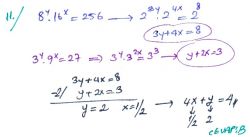 11. 8^y · 16^x = 256 → 2^{3y} · 2^{4x} = 2^8
3y+4x=8
3^y · 9^x = 27 ⇒ 3^y · 3^{2x} = 3^3 → y+2x=3
3y+4x=8
-2/ y+2x=3
y=2 x=1/2 → 4x+y = 4
1/2 2
CEVAP:B